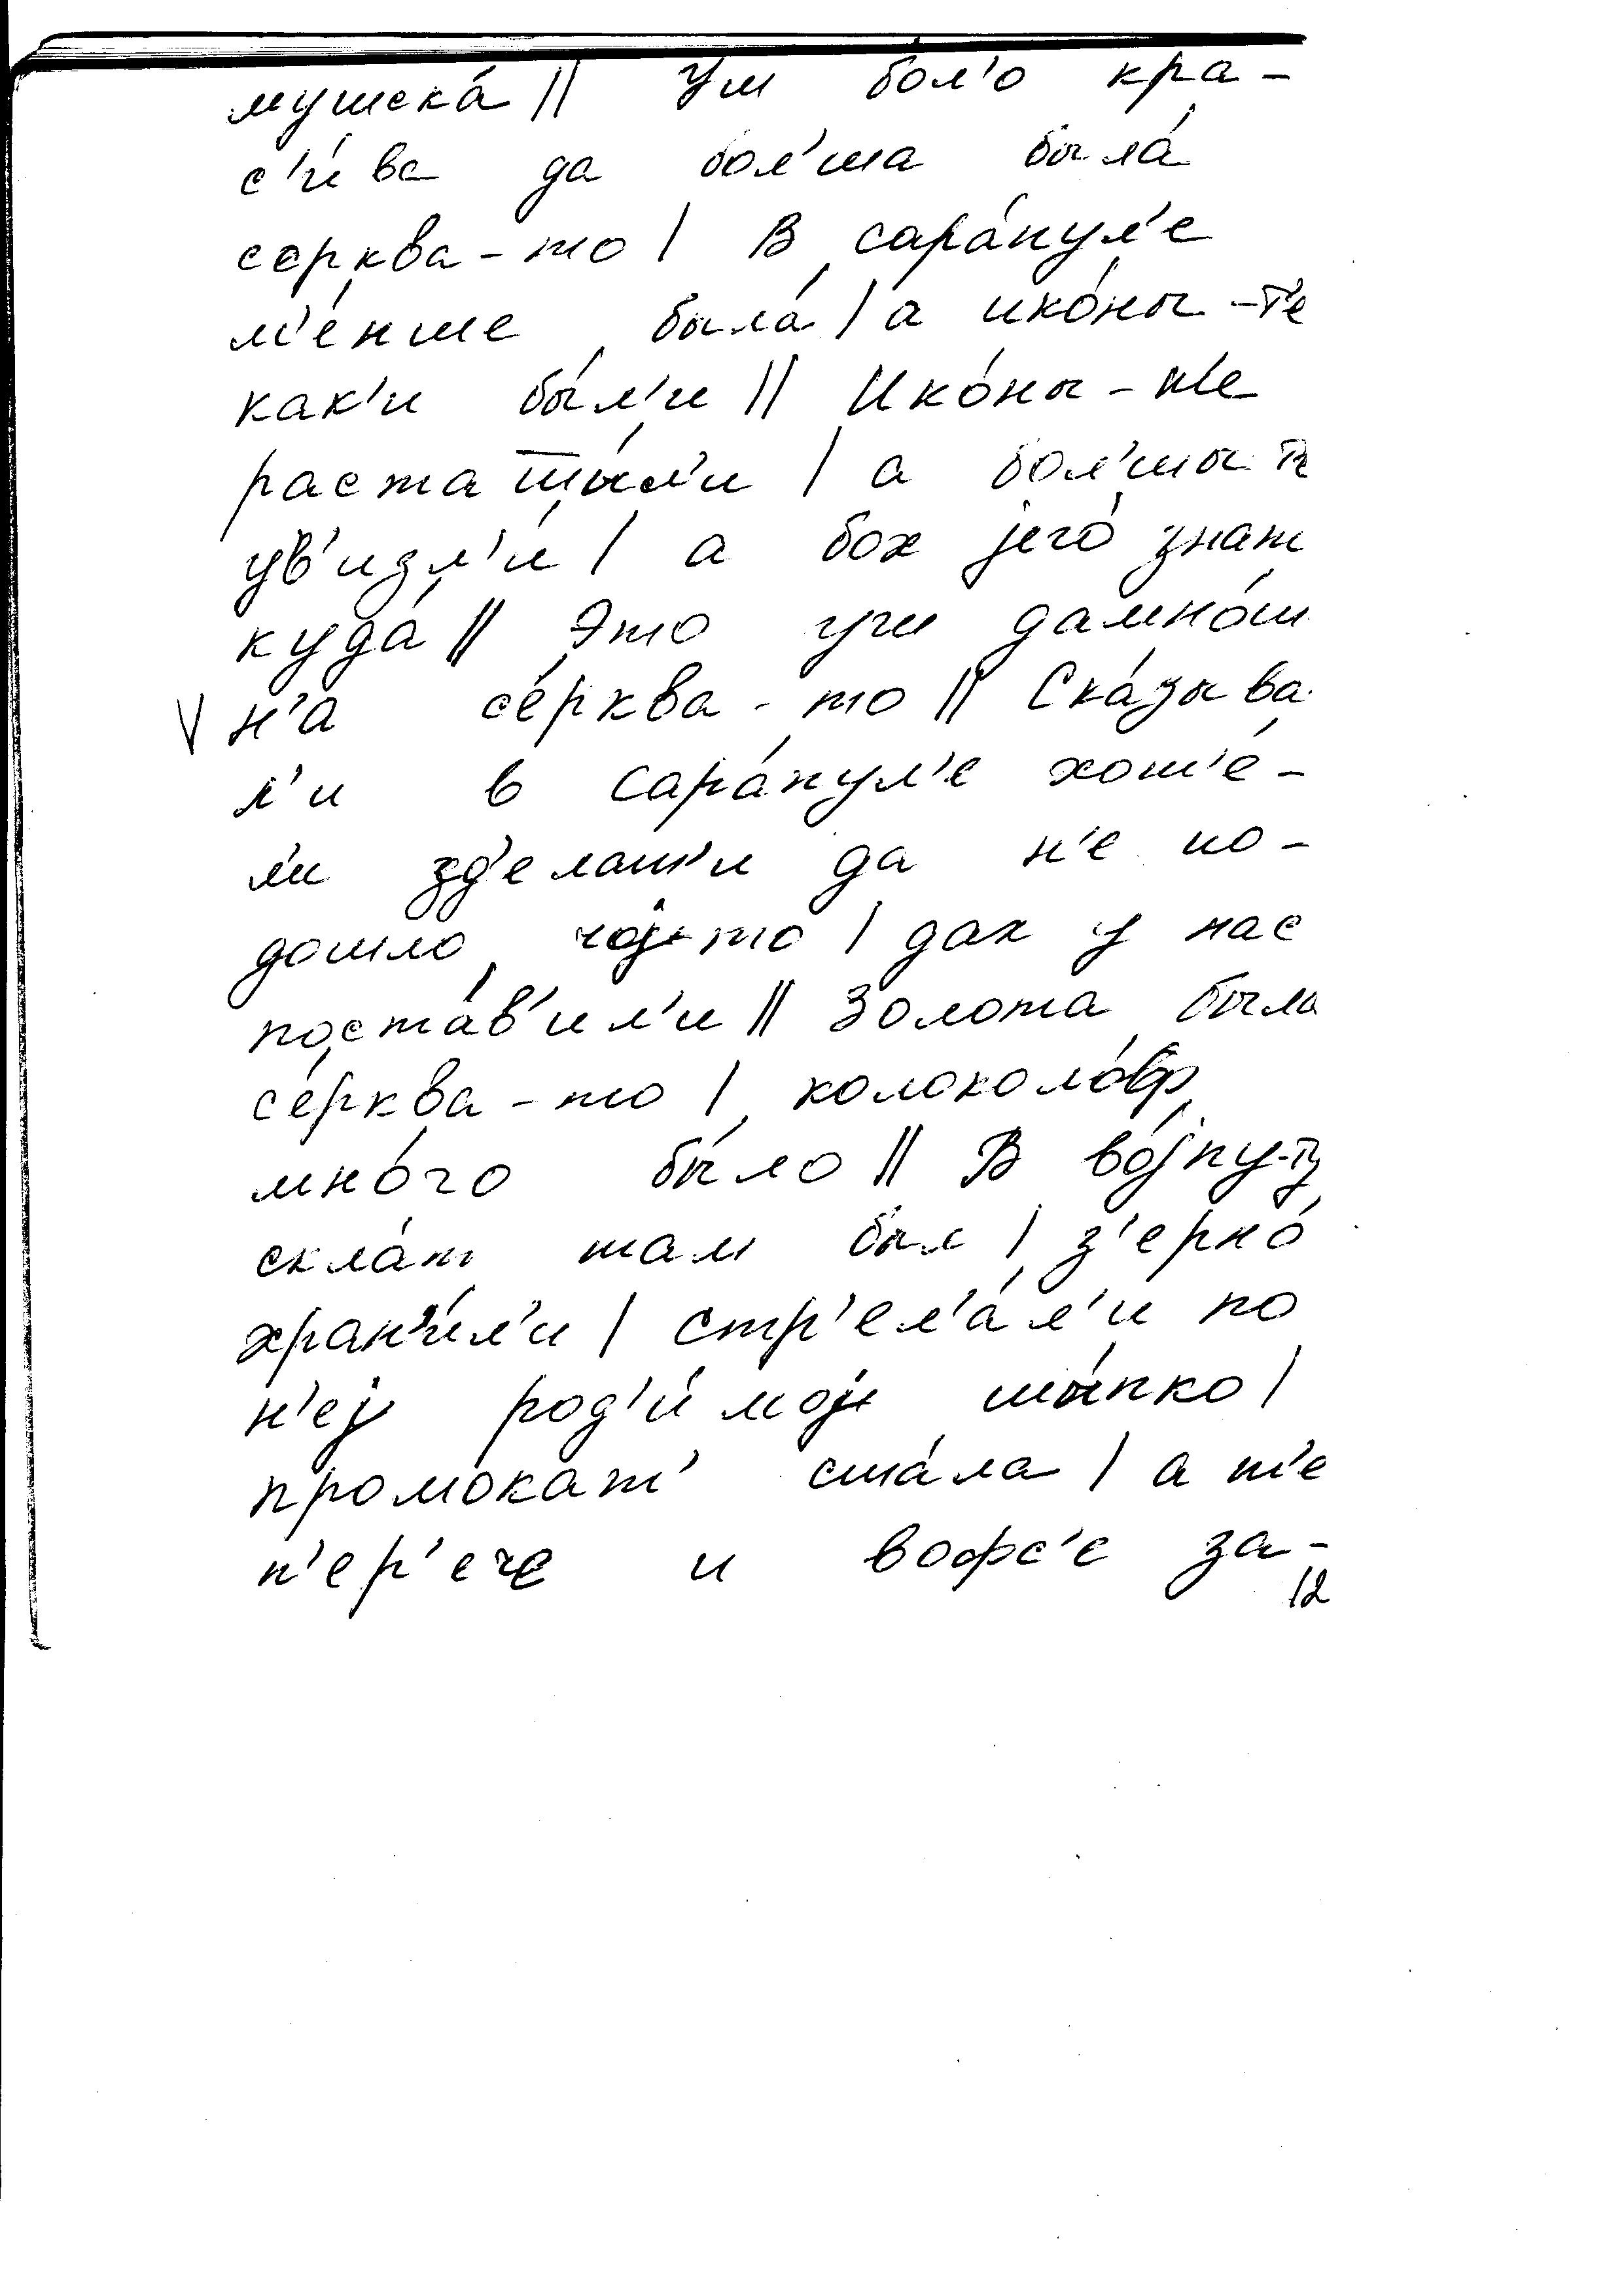 мушска́ || Уш бол'о кра-
с'и́ва да бол'ша была́
серква-то | В сара́пул'е
м'е́нше была́ | а ико́ны-т'е
как'и бы́л'и || Ико́ны-т'е
растащы́л'и | а бол'шы
ув'изл'и́ | а бох jего́ знат
куда́ || Это уш давно́ш
н'а се́рква-то || Ска́зыва
л'и в Сара́пул'е хот'е́-
л'и зд'елат'и да н'е по-
дошло то | дак у нас
поста́в'ил'и || Золота была
се́рква-то | колоколо́ф
мно́го бы́ло || В во́jну-ту
скла́т там был | з'ерно́
хран'и́л'и | стр'ел'а́л'и по
н'еj род'и́моj шы́пко |
промокат' ста́ла | а т'е
п'ер'ече и вофс'е за-
12